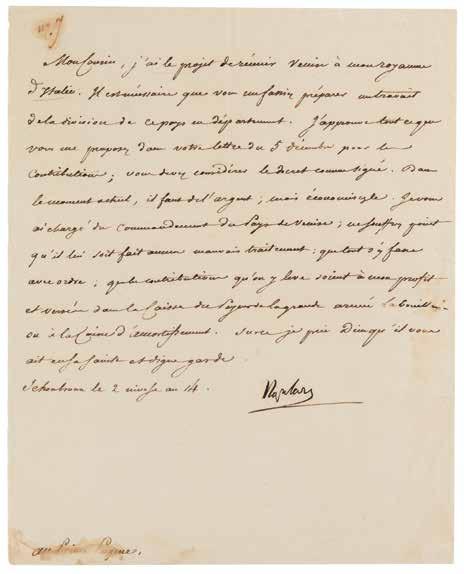 Mon Cousin, j'ai le projet de réunir Venise à mon royaume
d'Italie. Il est nécessaire que vous me fassiez préparer un travail
de la division de ce pays en département. J'approuve tout ce que
vous me proposez dans votre lettre du 5 décembre pour la
Contribution; vous devez considérer le décret comme signé. Dans
le moment actuel, il faut de l'argent; mais économisez le. Je vous
ai chargé du Commandement du Pays de Venise; ne souffrez point
qu'il lui soit fait aucun mauvais traitement; que tout s'y fasse
avec ordre; que les contributions qu'on y leve soient à mon profit
et versées dans la Caisse du Payeur de la grande armée
ou à la Caisse d'amortissement. Sur ce je prie Dieu qu'il vous
ait en sa sainte et digne garde
Schonbrunn le 2 nivose an 14.
Napoleon
au Prince Eugene.